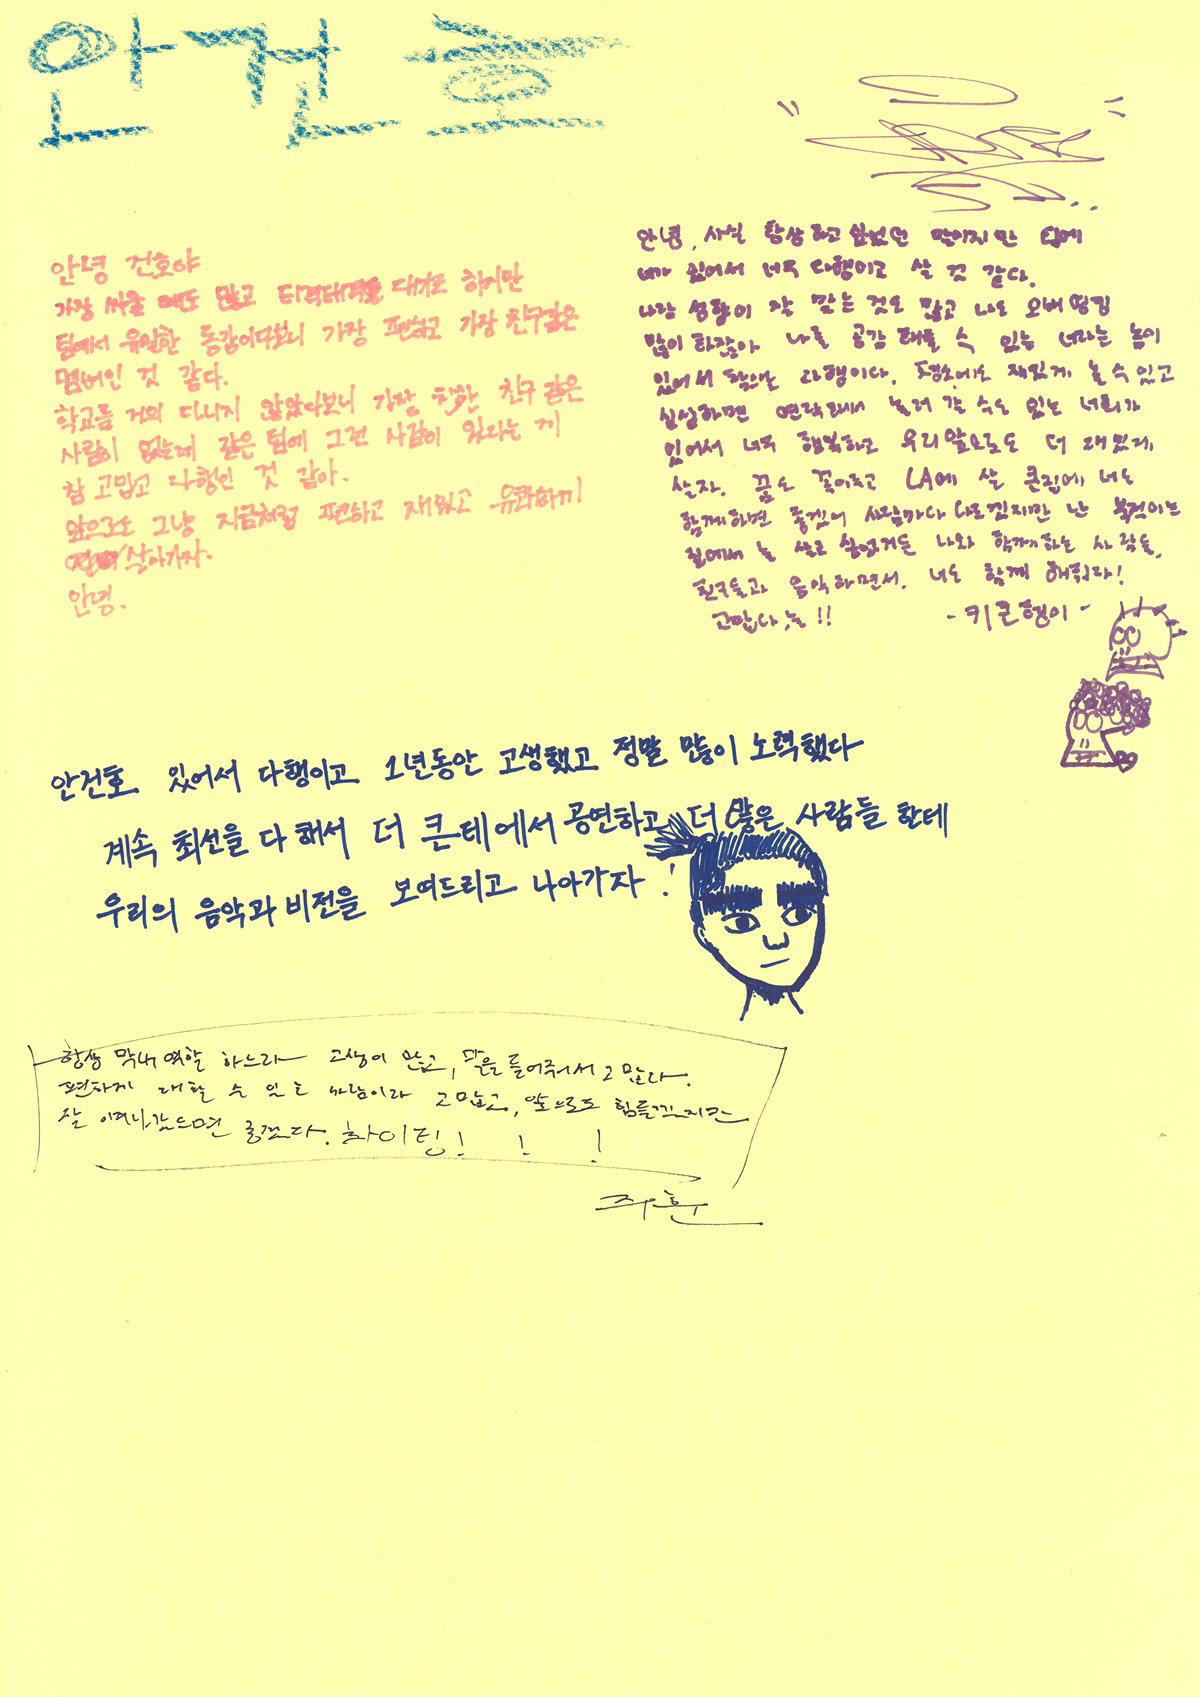 안건호
안녕 건호야
가장 싸울 때도 많고 티격태격을 대기도 하지만
팀에서 유일한 동갑이다보니 가장 편하고 가장 친구같은
멤버인 것 같다.
학교를 거의 다니지 않았다보니 가장 친한 친구 같은
사람이 없는데 같은 팀에 그런 사람이 있다는 게
참 고맙고 다행인 것 같아.
앞으로도 그냥 지금처럼 편하고 재밌고 유쾌하게
살아가자.
안녕.
안녕, 사실 항상 하고 싶었던 말이지만 팀에
네가 있어서 너무 다행이고 살 것 같다.
나랑 성향이 잘 맞는 것도 많고 나도 오버띵킹
많이 하잖아 나를 공감 해줄 수 있는 너라는 놈이
있어서 다행이다. 평소에도 재밌게 놀 수 있고
심심하면 연락해서 놀러 갈 수도 있는 너희가
있어서 너무 행복하고 우리 앞으로도 더 재밌게
살자. 꿈도 꼭 이루고 LA에 살 큰집에 너도
함께하면 좋겠어 사람마다 다르겠지만 난 북적이는
집에서 늘 살고 싶었거든 나와 함께하는 사람들,
친구들과 음악하면서. 너도 함께 해줘라!
고맙다, 늘!!
- 키큰형이 -
안건호 있어서 다행이고 1년동안 고생했고 정말 많이 노력했다
계속 최선을 다 해서 더 큰 데에서 공연하고 더 많은 사람들 한테
우리의 음악과 비전을 보여드리고 나아가자!
항상 막내 역할 하느라 고생이 많고, 말을 들어줘서 고맙다.
편하게 대할 수 있는 사람이라 고맙고, 앞으로도 힘들겠지만
잘 이겨나갔으면 좋겠다. 화이팅! ! !
주훈